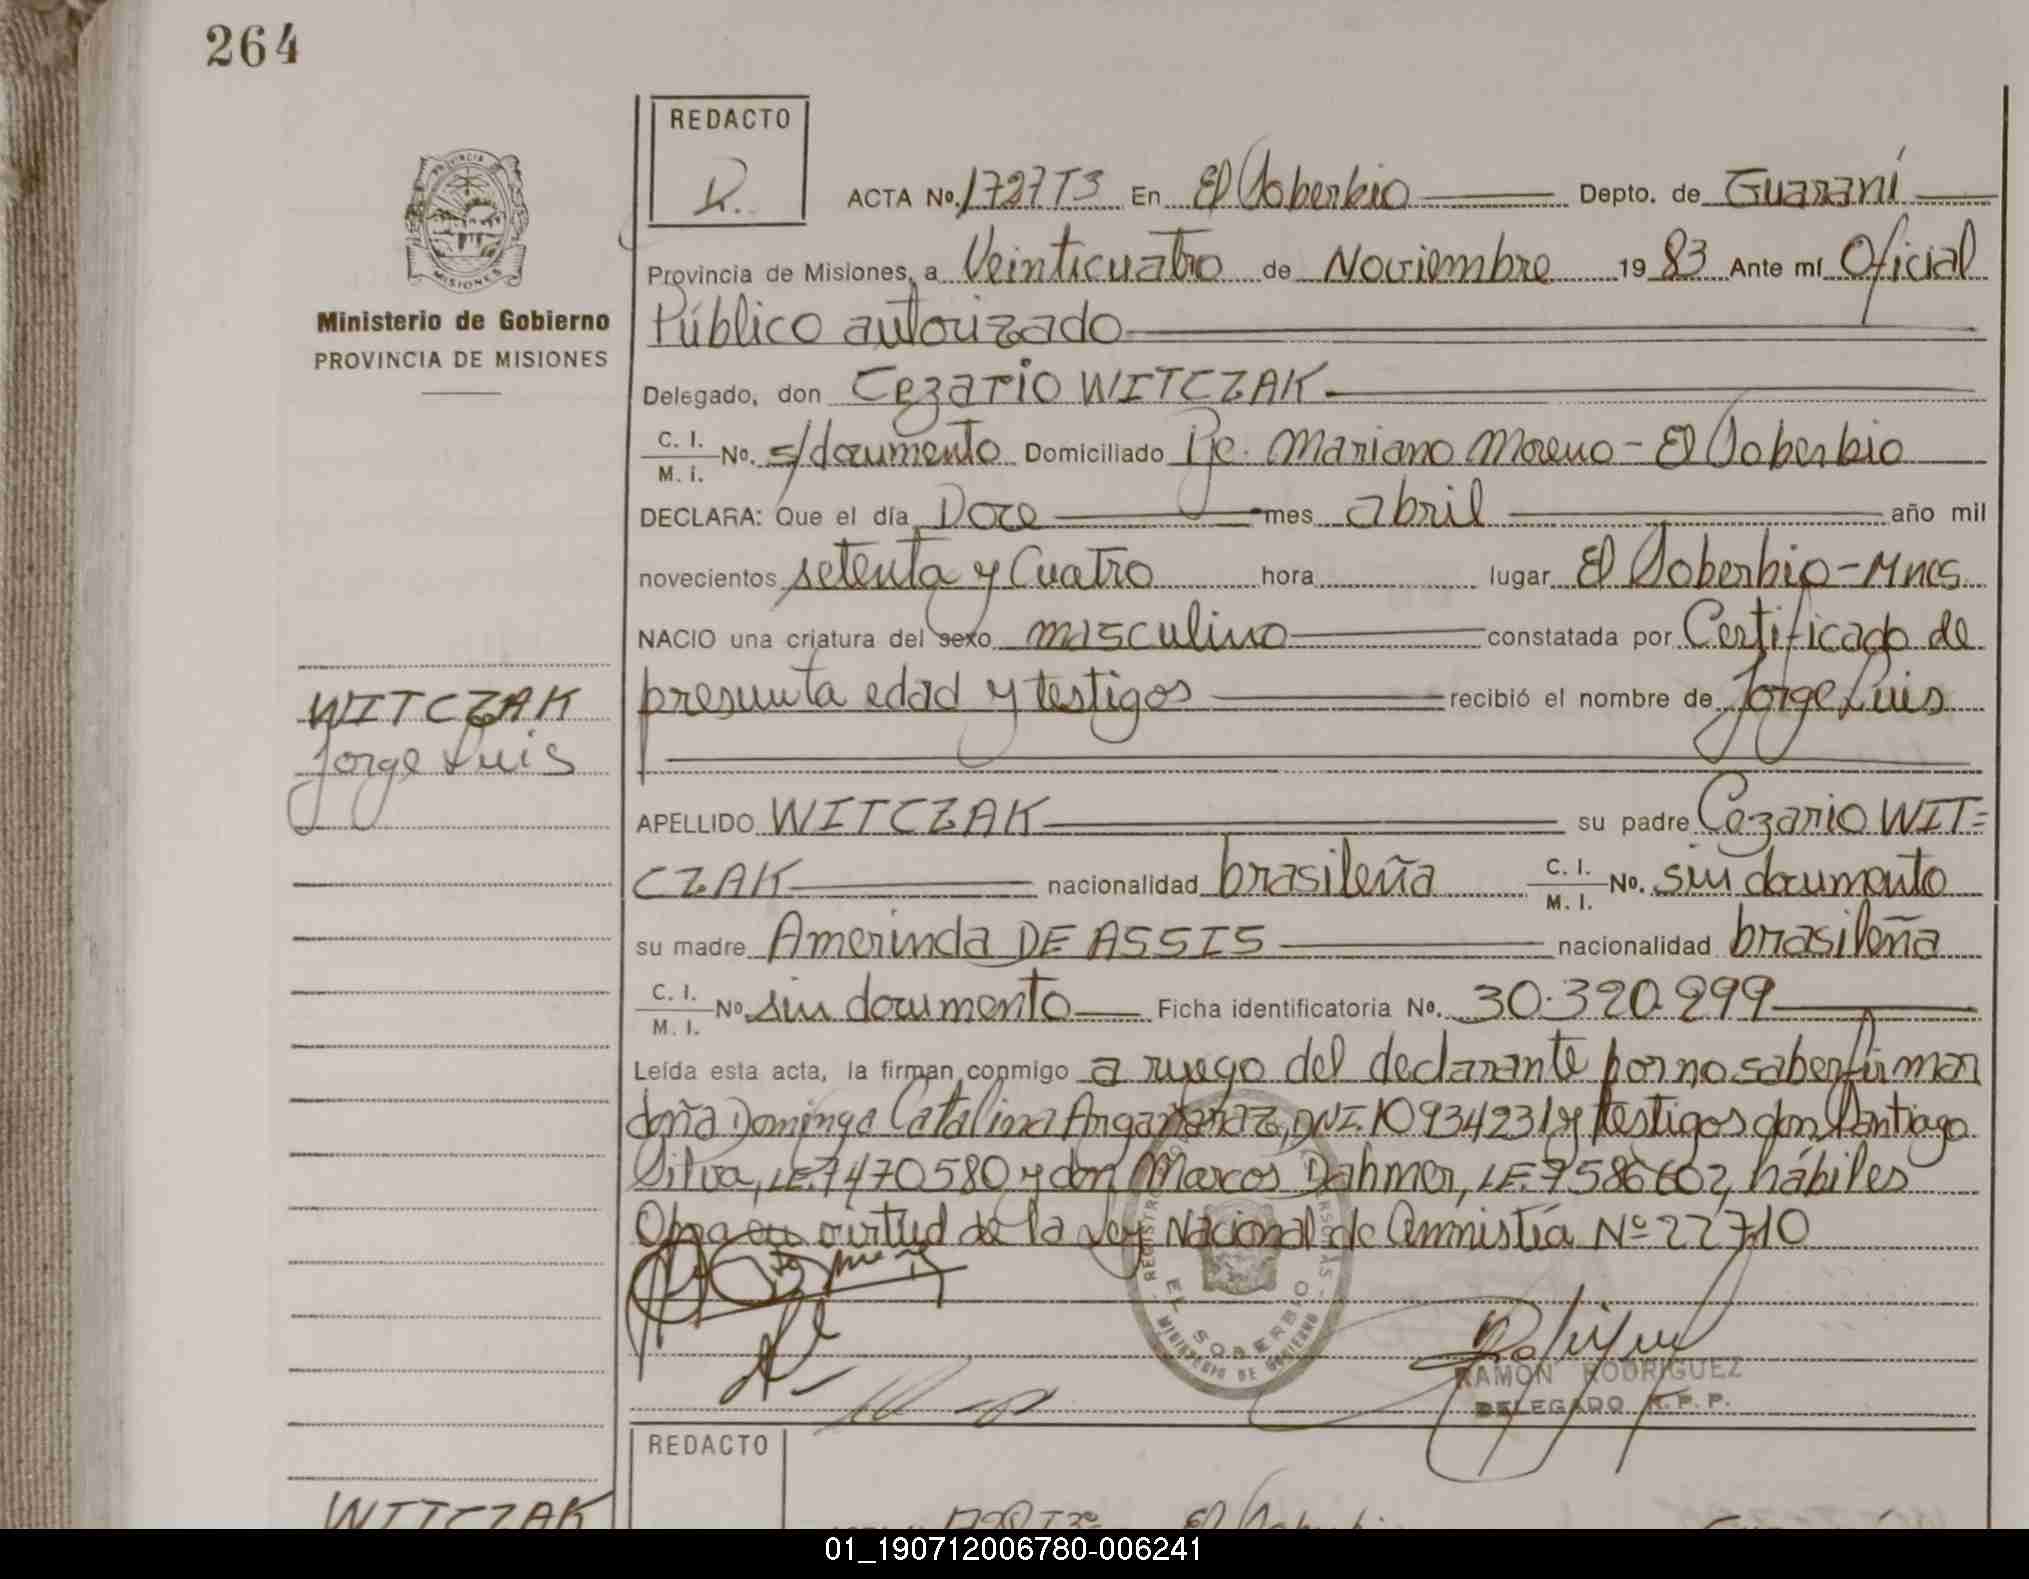 264
REDACTO
R.
ACTA No. 1727 T3 En El Soberbio Depto. de Guaraní
PROVINCIA
MISIONES
Provincia de Misiones, a Veinticuatro de Noviembre 19 83 Ante mí Oficial
Ministerio de Gobierno
PROVINCIA DE MISIONES
Público autorizado
Delegado, don Cezario WITCZAK
C. I. M. I. No. s/documento Domiciliado Pje. Mariano Moreno - El Soberbio
DECLARA: Que el día Doce mes abril año mil
novecientos setenta y Cuatro hora lugar El Soberbio-Mnes
NACIO una criatura del sexo masculino constatada por Certificado de
presunta edad y testigos recibió el nombre de Jorge Luis
WITCZAK
Jorge Luis
APELLIDO WITCZAK su padre Cezario WIT=
CZAK nacionalidad brasileña C. I. M. I. No. sin documento
su madre Amerinda DE ASSIS nacionalidad brasileña
C. I. M. I. No. sin documento Ficha identificatoria No. 30.320.299
Leída esta acta, la firman conmigo a ruego del declarante por no saber firmar
doña Dominga Catalina DNI. 10934231 y testigos don Santiago
Silva, LE. 7470580 y don Marcos Dahmer, LE. 7586602, hábiles
Obra en virtud de la Ley Nacional de Amnistía Nº 22710
EL SOBERBIO
MINISTERIO DE GOBIERNO
RAMON RODRIGUEZ
DELEGADO R. P. P.
REDACTO
WITCZAK
01_190712006780-006241